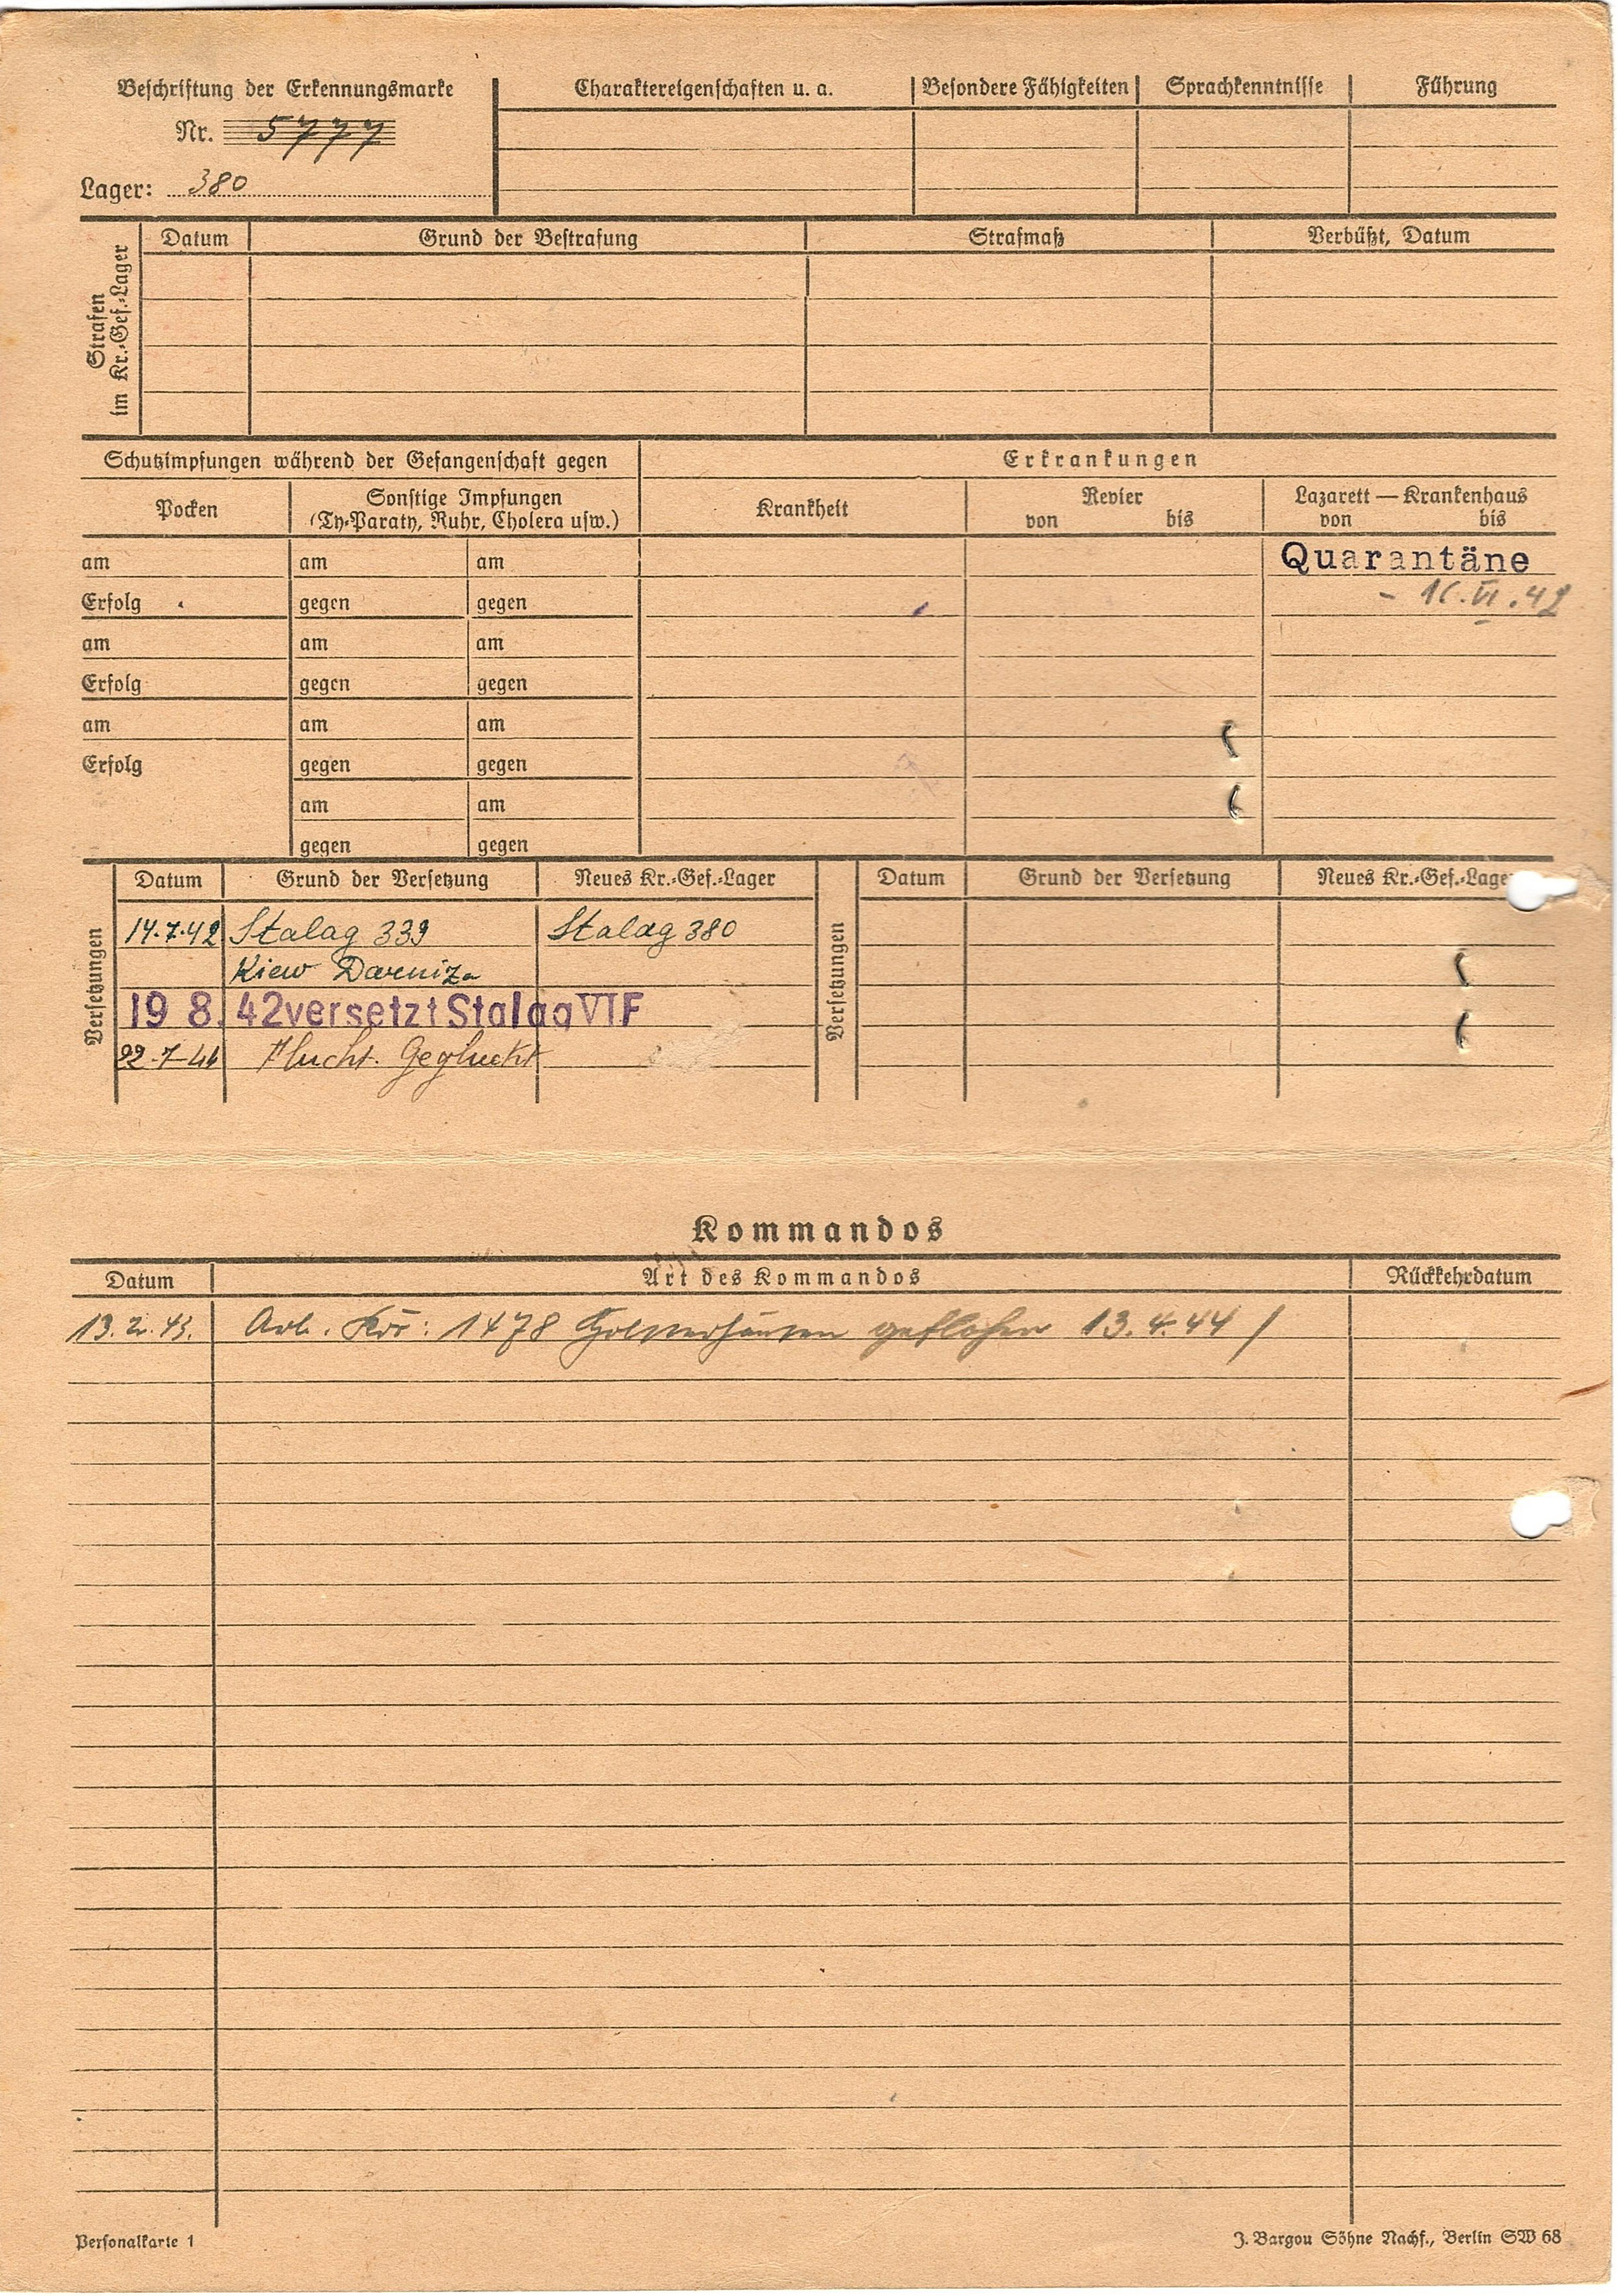 Beschriftung der Erkennungsmarke
Nr. 5777
Lager: 380
Charaktereigenschaften u. a. Besondere Fähigkeiten Sprachkenntnisse Führung
Strafen
im Kr.-Gef.-Lager
Datum Grund der Bestrafung Strafmaß Verbüßt, Datum
Schutzimpfungen während der Gefangenschaft gegen Erkrankungen
Pocken Sonstige Impfungen
(Ty-Paraty, Ruhr, Cholera usw.)
Krankheit Revier Lazarett — Krankenhaus
von bis von bis
am am am Quarantäne
Erfolg gegen gegen
am am am
Erfolg gegen gegen
am am am
Erfolg gegen gegen
am am
gegen gegen
Versetzungen Datum Grund der Versetzung Neues Kr.-Gef.-Lager Versetzungen Datum Grund der Versetzung Neues Kr.-Gef.-Lager
14.7.42 Stalag 339 Stalag 380
Kiew Darniza
19 8. 42 versetzt Stalag VI F
22-7-44 Flucht. Geglückt
Kommandos
Datum Art des Kommandos Rückkehrdatum
13.2.43. Arb. Kdo: 1478 geflohen 13.4.44 /
Personalkarte 1
J. Bargou Söhne Nachf., Berlin SW 68